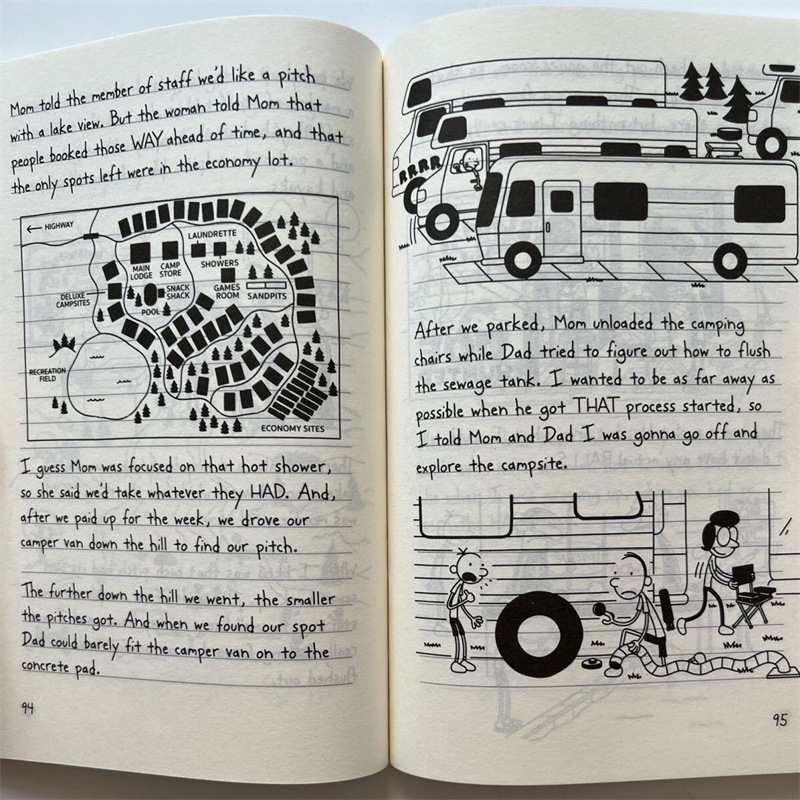 Mom told the member of staff we'd like a pitch
with a lake view. But the woman told Mom that
people booked those WAY ahead of time, and that
the only spots left were in the economy lot.
← HIGHWAY
LAUNDRETTE
MAIN
LODGE
CAMP
STORE
SHOWERS
DELUXE
CAMPSITES
SNACK
SHACK
GAMES
ROOM
SANDPITS
POOL
RECREATION
FIELD
ECONOMY SITES
I guess Mom was focused on that hot shower,
so she said we'd take whatever they HAD. And,
after we paid up for the week, we drove our
camper van down the hill to find our pitch.
The further down the hill we went, the smaller
the pitches got. And when we found our spot
Dad could barely fit the camper van on to the
concrete pad.
94
RRRR
After we parked, Mom unloaded the camping
chairs while Dad tried to figure out how to flush
the sewage tank. I wanted to be as far away as
possible when he got THAT process started, so
I told Mom and Dad I was gonna go off and
explore the campsite.
95